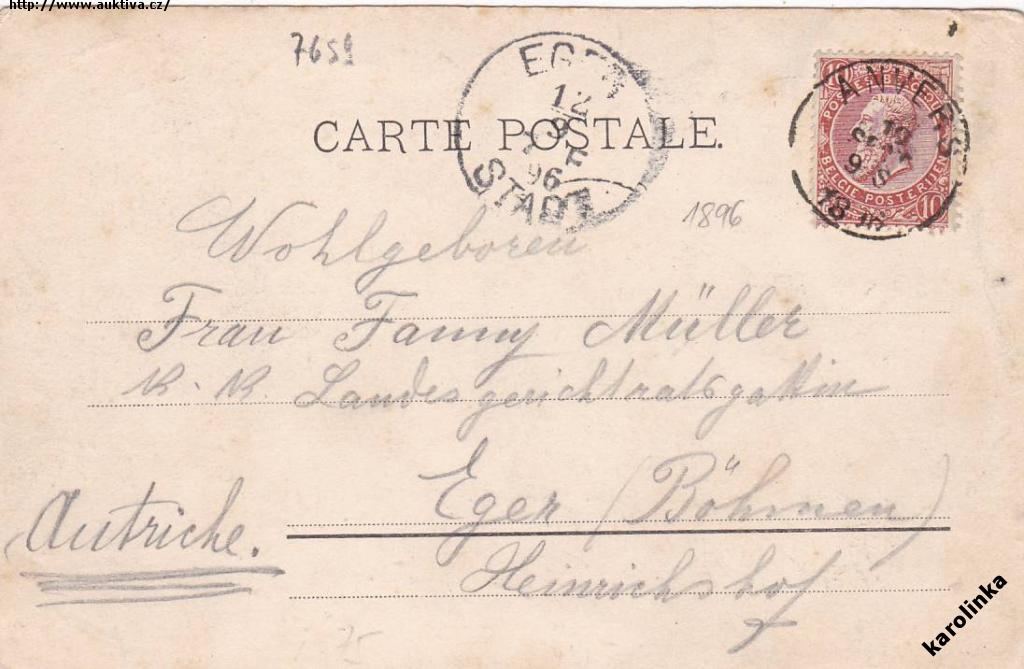 http://www.auktiva.cz/
7659
EGER
12
9
96
STADT
CARTE POSTALE.
10
POSTES BELGIQUE
BELGIE POSTERIJEN
10
ANVERS
10
SEPT
1896
Wohlgeboren
Frau Fanny Müller
K. K. Landesgerichtratsgattin
Eger (Böhmen)
Autriche.
Heinrichshof
75
karolinka